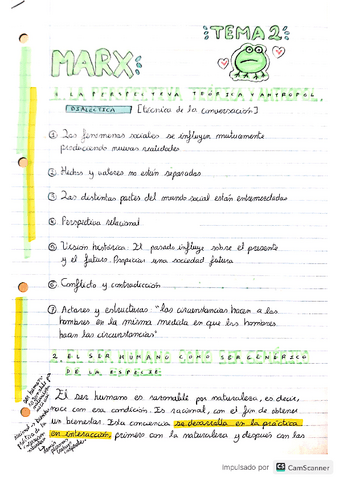 TEMA 2:
MARX:
1. LA PERSPECTIVA TEÓRICA Y ANTROPOL.
DIALÉCTICA [técnica de la conversación]
① Los fenómenos sociales se influyen mutuamente
produciendo nuevas realidades
② Hechos y valores no están separados
③ Las distintas partes del mundo social están entremezcladas
④ Perspectiva relacional
⑤ Vission histórica: El pasado influye sobre el presente
y el futuro. Propicias una sociedad futura
⑥ Conflicto y contradicción
⑦ Actores y estructuras: "las circunstancias hacen a los
hombres en la misma medida en que los hombres
hacen las circunstancias"
2. EL SER HUMANO COMO SER GENÉRICO
DE LA ESPECIE
El ser humano es razonable por naturaleza, es decir,
nace con esa condición. Es racional, con el fin de obtener
un bienestar. Esta conciencia se desarrolla en la práctica
en interacción, primero con la naturaleza y después con los
ser humano
razonable por
naturaleza
Impulsado por CS CamScanner